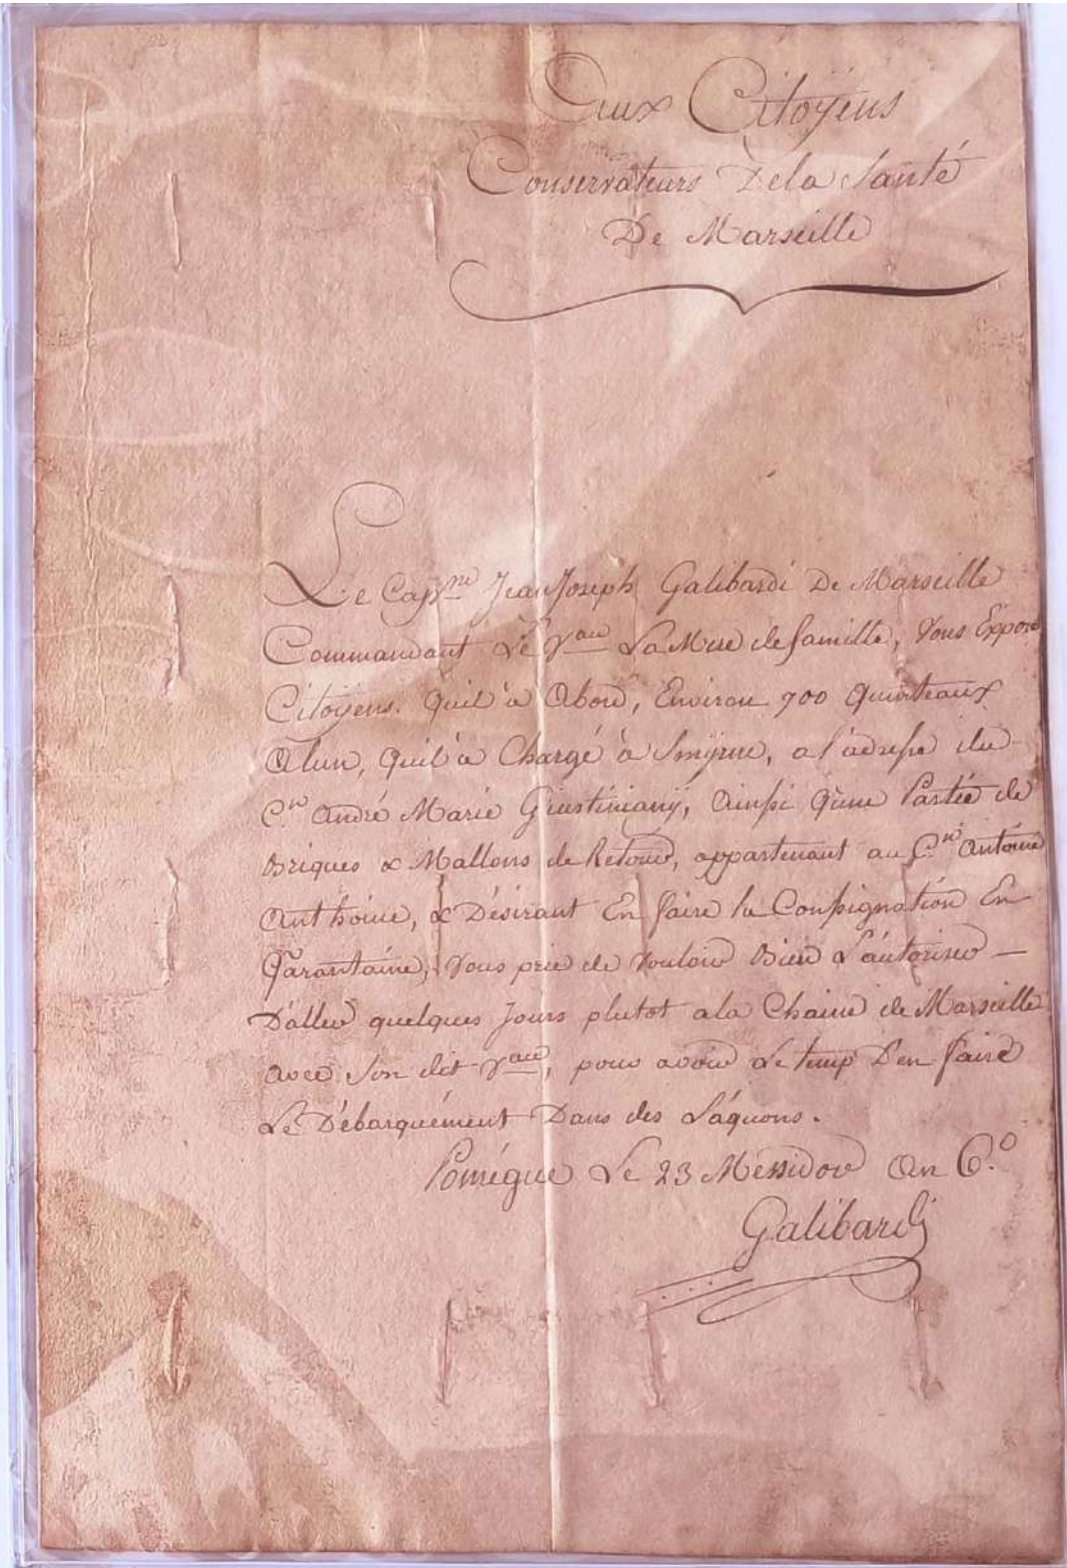 Aux Citoÿens
Conservateurs De la Santé
De Marseille
Le Cap.ne Jean Joseph Galibardi De Marseille
Commandant Le V.au La Mere de famille, Vous Expose
Citoÿens. quil à Abord, Environ 700 quinteaux
Alun, quil à Chargé à Smÿrne, a l'adresse du
C.en André Marie Giustinianÿ, Ainssi qúne Partie de
Briques & Mallons de Retour, appartenant au C.en Antoine
Anthoine, & Désirant En faire la Conssignation En
Qarantaine, Vous prie de Vouloir Bien L'autoriser —
D'aller quelques Jours plutot a la Chaine de Marseille
avec Son dit V.au, pour avoir Le temp D'en faire
Le Débarquément Dans des Láquons.
Pomégue Le 23 Messidor An 6.o
Galibardi